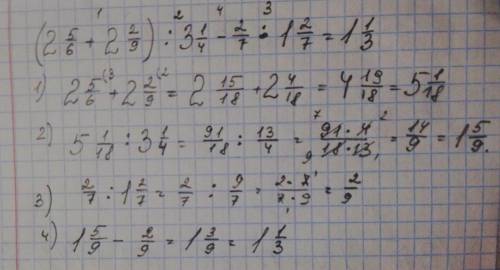 (2 5/6 + 2 2/9) : 3 1/4 - 2/7 : 1 2/7 = 1 1/3
1) 2 5/6 (3 + 2 2/9 (2 = 2 15/18 + 2 4/18 = 4 19/18 = 5 1/18
2) 5 1/18 : 3 1/4 = 91/18 : 13/4 = 91·4/18·13 = 14/9 = 1 5/9.
3) 2/7 : 1 2/7 = 2/7 : 9/7 = 2·7/7·9 = 2/9
4) 1 5/9 - 2/9 = 1 3/9 = 1 1/3